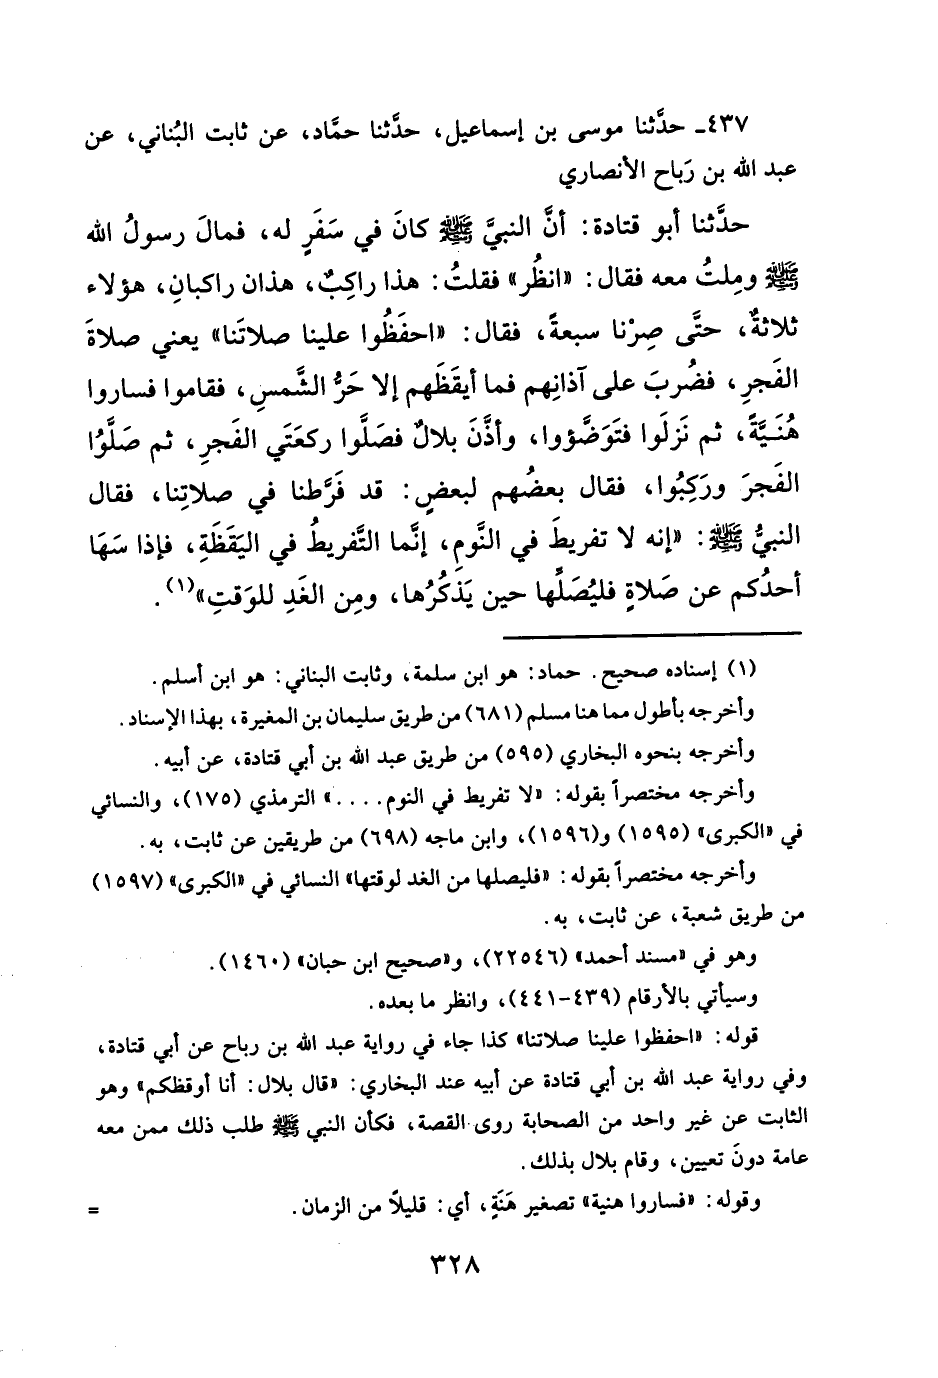 ٤٣٧ـ حدَّثنا موسى بن إسماعيل، حدَّثنا حمَّاد، عن ثابت البُناني، عن
عبد الله بن رَباح الأنصاري
حدَّثنا أبو قتادة: أنَّ النبيَّ ﷺ كانَ في سَفَرٍ له، فمالَ رسولُ الله
ﷺ ومِلتُ معه فقال: «انظُر» فقلتُ: هذا راكِبٌ، هذان راكبانِ، هؤلاء
ثلاثةٌ، حتَّى صِرْنا سبعةً، فقال: «احفَظُوا علينا صلاتَنا» يعني صلاةَ
الفَجرِ، فضُرِبَ على آذانِهم فما أيقَظَهم إلا حَرُّ الشَّمسِ، فقاموا فساروا
هُنَيَّةً، ثم نَزلَوا فتَوَضَّؤوا، وأذَّنَ بلالٌ فصَلَّوا ركعَتَي الفَجرِ، ثم صَلَّوُا
الفَجرَ ورَكِبُوا، فقال بعضُهم لبعضٍ: قد فَرَّطنا في صلاتِنا، فقال
النبيُّ ﷺ: «إنه لا تفريطَ في النَّومِ، إنَّما التَّفريطُ في اليَقَظَةِ، فإذا سَهَا
أحدُكم عن صَلاةٍ فليُصَلِّها حين يَذكُرُها، ومِن الغَدِ للوَقتِ»(١).
(١) إسناده صحيح. حماد: هو ابن سلمة، وثابت البناني: هو ابن أسلم.
وأخرجه بأطول مما هنا مسلم (٦٨١) من طريق سليمان بن المغيرة، بهذا الإسناد.
وأخرجه بنحوه البخاري (٥٩٥) من طريق عبد الله بن أبي قتادة، عن أبيه.
وأخرجه مختصراً بقوله: «لا تفريط في النوم....» الترمذي (١٧٥)، والنسائي
في «الكبرى» (١٥٩٥) و(١٥٩٦)، وابن ماجه (٦٩٨) من طريقين عن ثابت، به.
وأخرجه مختصراً بقوله: «فليصلها من الغد لوقتها» النسائي في «الكبرى» (١٥٩٧)
من طريق شعبة، عن ثابت، به.
وهو في «مسند أحمد» (٢٢٥٤٦)، و«صحيح ابن حبان» (١٤٦٠).
وسيأتي بالأرقام (٤٣٩-٤٤١)، وانظر ما بعده.
قوله: «احفظوا علينا صلاتنا» كذا جاء في رواية عبد الله بن رباح عن أبي قتادة،
وفي رواية عبد الله بن أبي قتادة عن أبيه عند البخاري: «قال بلال: أنا أوقظكم» وهو
الثابت عن غير واحد من الصحابة روى القصة، فكأن النبي ﷺ طلب ذلك ممن معه
عامة دونَ تعيين، وقام بلال بذلك.
وقوله: «فساروا هنية» تصغير هَنَةٍ، أي: قليلاً من الزمان. =
٣٢٨